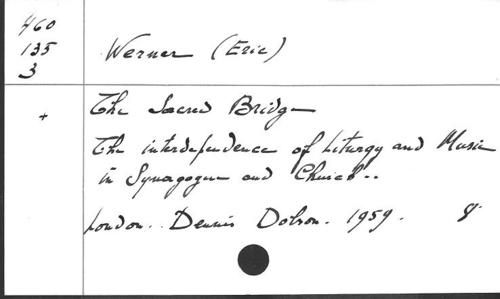 460
135
3
Werner (Eric)
+
The Sacred Bridge
The interdependence of Liturgy and Music
in Synagogue and Church..
London. Dennis Dobson. 1959. 8°